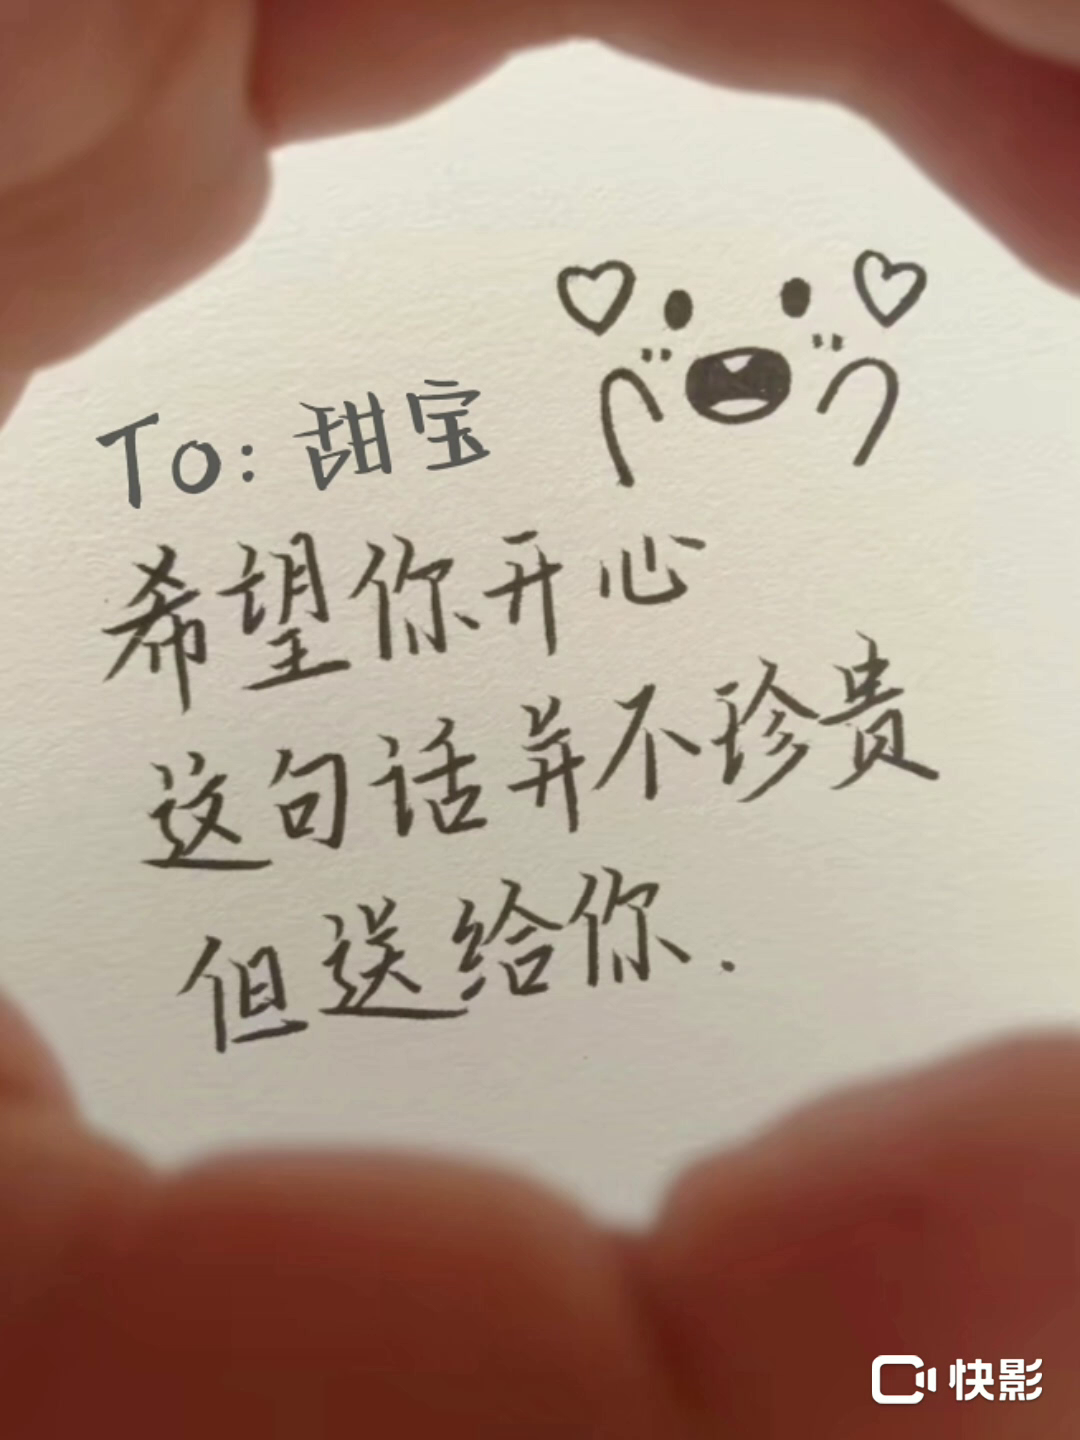 To: 甜宝
希望你开心
这句话并不珍贵
但送给你.
快影